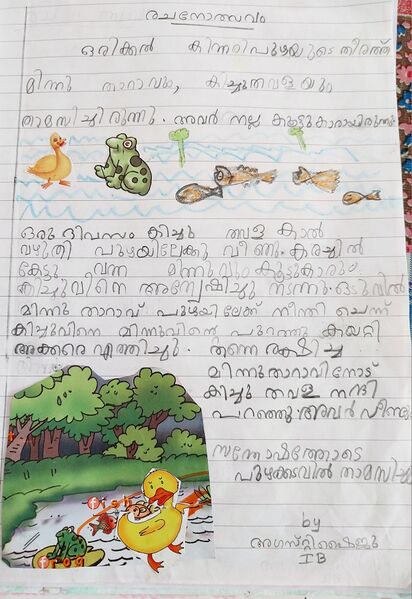 രചനോത്സവം
ഒരിക്കൽ കിന്നരിപുഴയുടെ തീരത്ത്
മിന്നു താറാവും, കിച്ചുതവളയും
താമസിച്ചിരുന്നു. അവർ നല്ല കൂട്ടുകാരായിരുന്നു
ഒരു ദിവസം കിച്ചു തവള കാൽ
വഴുതി പുഴയിലേക്കു വീണു. കരച്ചിൽ
കേട്ടു വന്ന മിന്നുവും കൂട്ടുകാരും
കിച്ചുവിനെ അന്വേഷിച്ചു നടന്നു. ഒടുവിൽ
മിന്നു താറാവ് പുഴയിലേക്ക് നീന്തി ചെന്ന്
കിച്ചുവിനെ മിന്നുവിന്റെ പുറത്തു കയറ്റി
അക്കരെ എത്തിച്ചു. തന്നെ രക്ഷിച്ച
മിന്നുതാറാവിനോട്
കിച്ചു തവള നന്ദി
പറഞ്ഞു. അവർ വീണ്ടും
സന്തോഷത്തോടെ
പുഴക്കടവിൽ താമസിച്ചു
fish
frog
by
I B